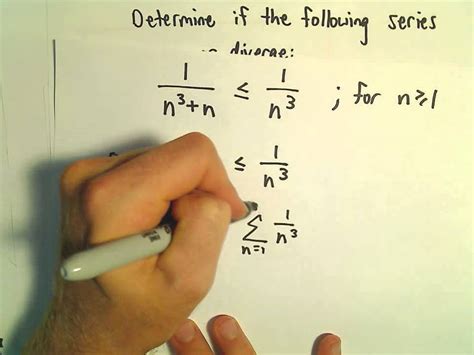 Determine if the following series
diverge:
1/(n³+n) ≤ 1/n³ ; for n≥1
≤ 1/n³
∑ n=1 1/n³